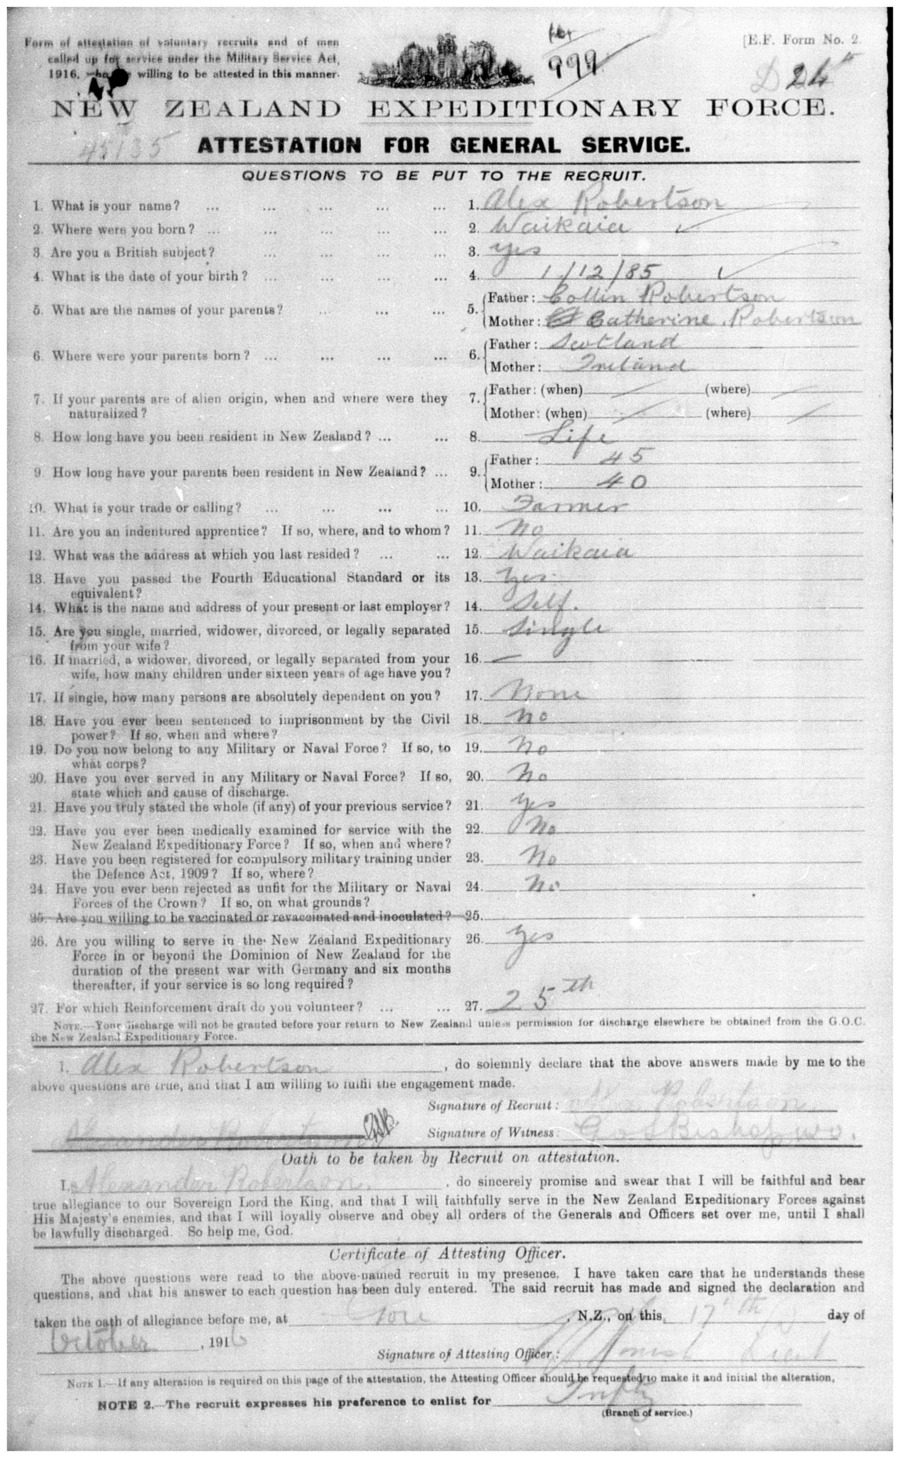 Form of attestation of voluntary recruits and of men
called up for service under the Military Service Act,
1916, who are willing to be attested in this manner.
999
[E.F. Form No. 2.
D 24th
NEW ZEALAND EXPEDITIONARY FORCE.
45135
ATTESTATION FOR GENERAL SERVICE.
QUESTIONS TO BE PUT TO THE RECRUIT.
1. What is your name? ... ... ... ... 1. Alex Robertson
2. Where were you born? ... ... ... ... 2. Waikaia
3. Are you a British subject? ... ... ... 3. yes
4. What is the date of your birth? ... ... ... 4. 1/12/85
5. What are the names of your parents? ... ... ... 5. Father: Collin Robertson
Mother: Catherine Robertson
6. Where were your parents born? ... ... ... 6. Father: Scotland
Mother: Ireland
7. If your parents are of alien origin, when and where were they
naturalized?
7. Father: (when) (where)
Mother: (when) (where)
8. How long have you been resident in New Zealand? ... ... 8. Life
9. How long have your parents been resident in New Zealand? ... 9. Father: 45
Mother: 40
10. What is your trade or calling? ... ... ... ... 10. Farmer
11. Are you an indentured apprentice? If so, where, and to whom? 11. No
12. What was the address at which you last resided? ... ... 12. Waikaia
13. Have you passed the Fourth Educational Standard or its
equivalent?
13. Yes.
14. What is the name and address of your present or last employer? 14. Self.
15. Are you single, married, widower, divorced, or legally separated
from your wife?
15. Single
16. If married, a widower, divorced, or legally separated from your
wife, how many children under sixteen years of age have you?
16. —
17. If single, how many persons are absolutely dependent on you? 17. None
18. Have you ever been sentenced to imprisonment by the Civil
power? If so, when and where?
18. No
19. Do you now belong to any Military or Naval Force? If so, to
what corps?
19. No
20. Have you ever served in any Military or Naval Force? If so,
state which and cause of discharge.
20. No
21. Have you truly stated the whole (if any) of your previous service? 21. yes
22. Have you ever been medically examined for service with the
New Zealand Expeditionary Force? If so, when and where?
22. No
23. Have you been registered for compulsory military training under
the Defence Act, 1909? If so, where?
23. No
24. Have you ever been rejected as unfit for the Military or Naval
Forces of the Crown? If so, on what grounds?
24. No
25. Are you willing to be vaccinated or revaccinated and inoculated? 25.
26. Are you willing to serve in the New Zealand Expeditionary
Force in or beyond the Dominion of New Zealand for the
duration of the present war with Germany and six months
thereafter, if your service is so long required?
26. Yes
27. For which Reinforcement draft do you volunteer? ... ... 27. 25th
NOTE.—Your discharge will not be granted before your return to New Zealand unless permission for discharge elsewhere be obtained from the G.O.C.
the New Zealand Expeditionary Force.
I, Alex Robertson, do solemnly declare that the above answers made by me to the
above questions are true, and that I am willing to fulfil the engagement made.
Signature of Recruit: Alex Robertson
Alexander Robertson
Signature of Witness: Bishop
Oath to be taken by Recruit on attestation.
I, Alexander Robertson, do sincerely promise and swear that I will be faithful and bear
true allegiance to our Sovereign Lord the King, and that I will faithfully serve in the New Zealand Expeditionary Forces against
His Majesty's enemies, and that I will loyally observe and obey all orders of the Generals and Officers set over me, until I shall
be lawfully discharged. So help me, God.
Certificate of Attesting Officer.
The above questions were read to the above-named recruit in my presence. I have taken care that he understands these
questions, and that his answer to each question has been duly entered. The said recruit has made and signed the declaration and
taken the oath of allegiance before me, at Gore, N.Z., on this 17th day of
October, 1916
Signature of Attesting Officer: Lieut
NOTE 1.—If any alteration is required on this page of the attestation, the Attesting Officer should be requested to make it and initial the alteration,
NOTE 2.—The recruit expresses his preference to enlist for Inftry
(Branch of service.)